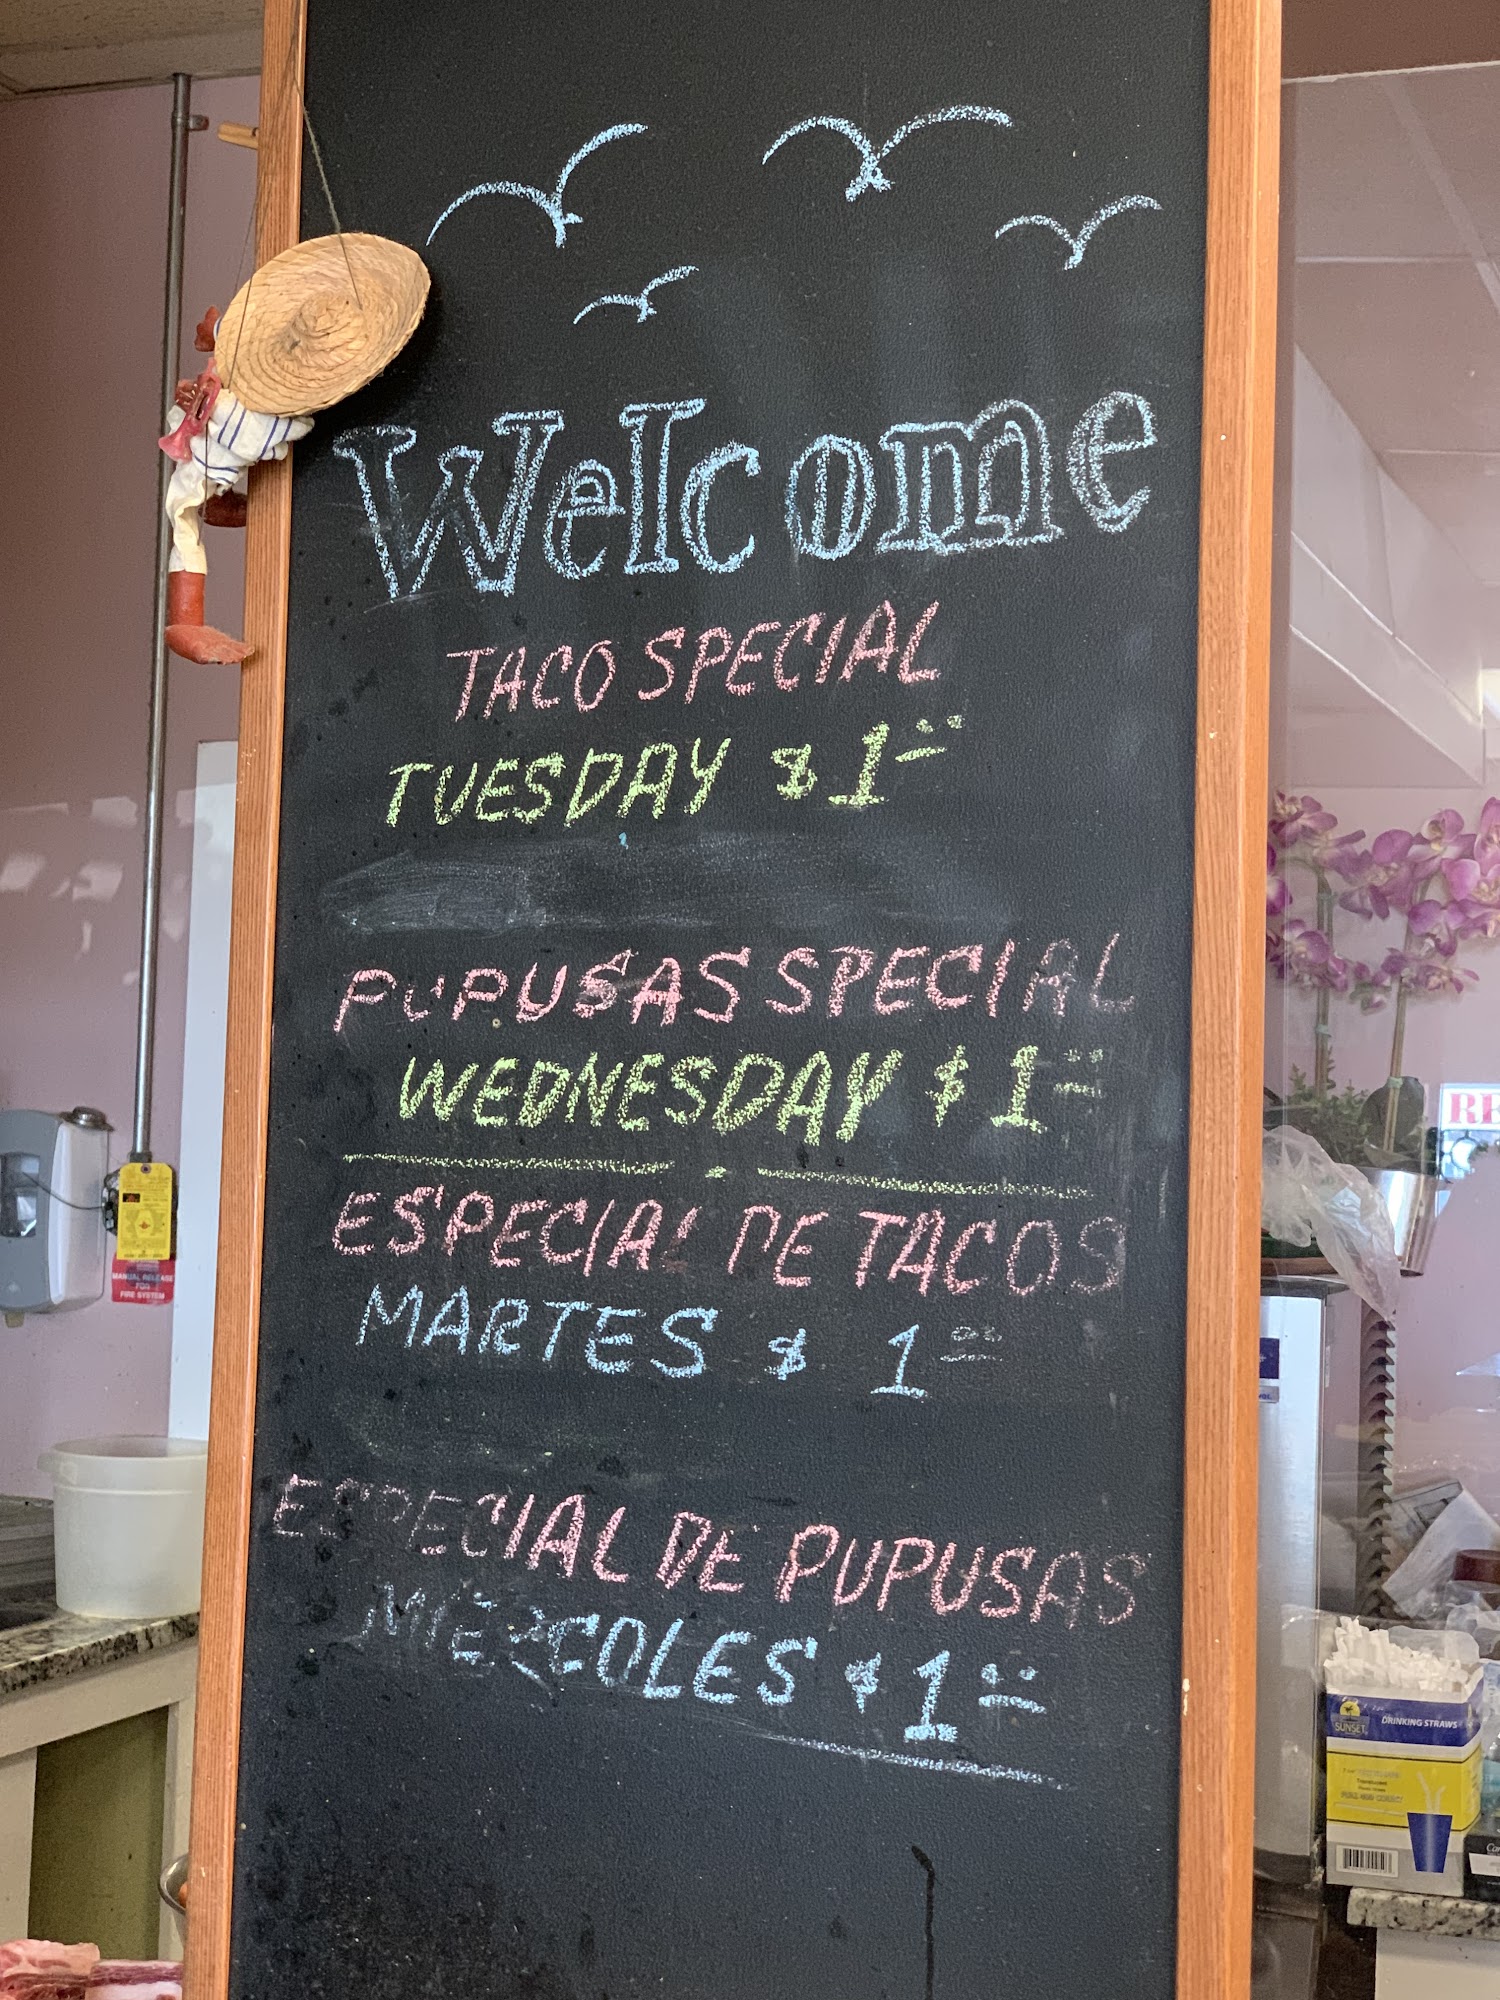 Welcome
TACO SPECIAL
TUESDAY $ 1.00
PUPUSAS SPECIAL
WEDNESDAY $ 1.00
ESPECIAL DE TACOS
MARTES $ 1.00
ESPECIAL DE PUPUSAS
MIERCOLES $ 1.00
MANUAL RELEASE
FOR
FIRE SYSTEM
RE
SUNSET
DRINKING STRAWS